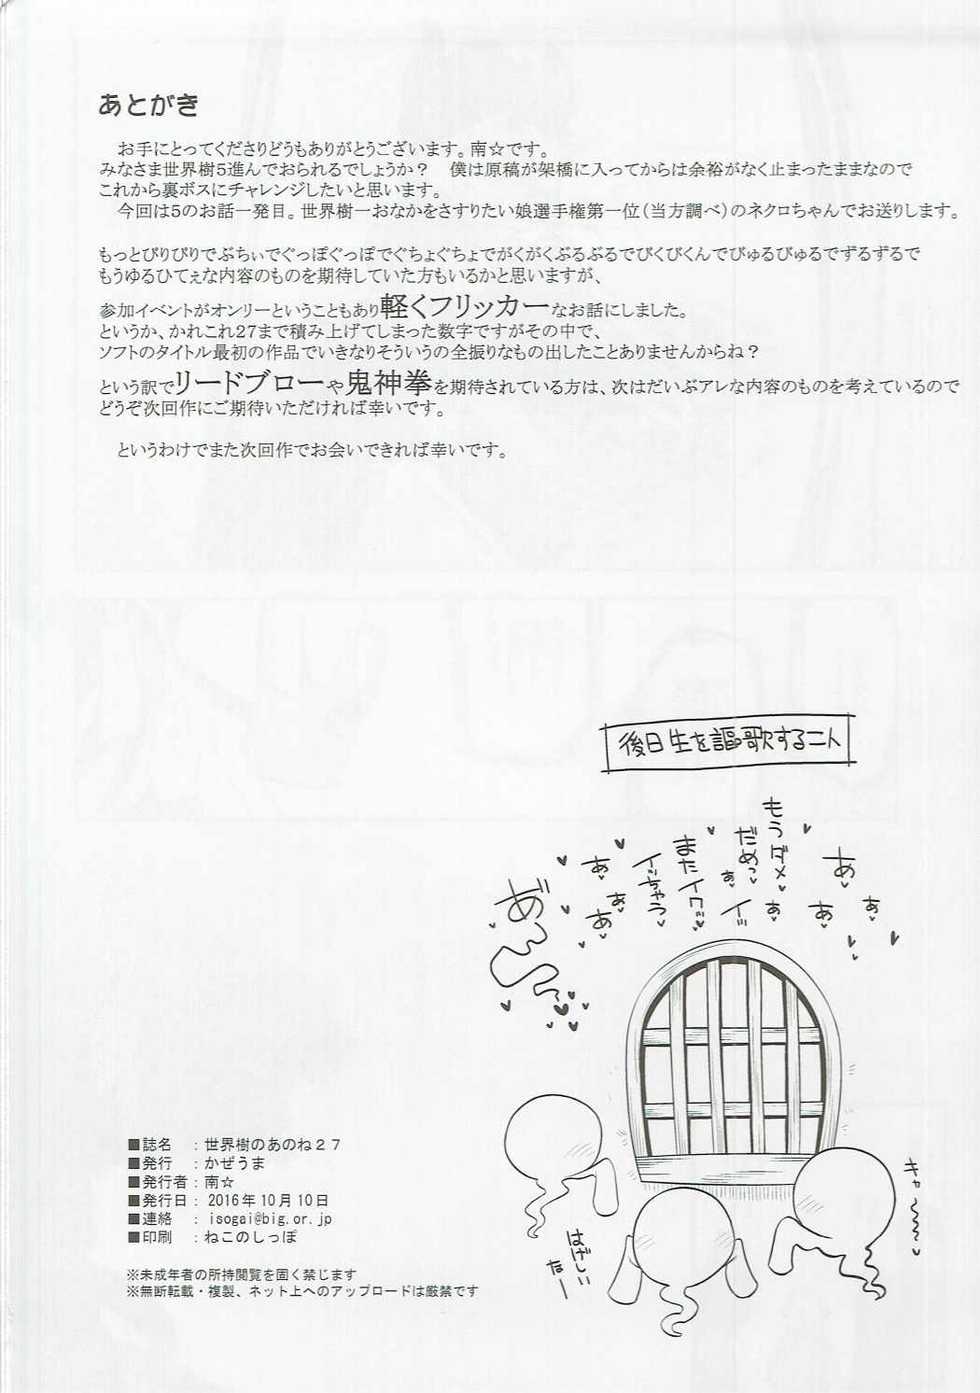 あとがき
お手にとってくださりどうもありがとうございます。南☆です。
みなさま世界樹5進んでおられるでしょうか？　僕は原稿が架橋に入ってからは余裕がなく止まったままなので
これから裏ボスにチャレンジしたいと思います。
今回は5のお話一発目。世界樹一おなかをさすりたい娘選手権第一位(当方調べ)のネクロちゃんでお送りします。
もっとびりびりでぶちぃでぐっぽぐっぽでぐちょぐちょでがくがくぶるぶるでびくびくんでびゅるびゅるでずるずるで
もうゆるひてぇな内容のものを期待していた方もいるかと思いますが、
参加イベントがオンリーということもあり軽くフリッカーなお話にしました。
というか、かれこれ27まで積み上げてしまった数字ですがその中で、
ソフトのタイトル最初の作品でいきなりそういうの全振りなもの出したことありませんからね？
という訳でリードブローや鬼神拳を期待されている方は、次はだいぶアレな内容のものを考えているので
どうぞ次回作にご期待いただければ幸いです。
というわけでまた次回作でお会いできれば幸いです。
後日生を謳歌する二人
あ♥
あ♥
あ♥
もうダメ♥
あ♥
だめっ♥
あ♥
イッ
またイクッ♥
イッちゃう♥
あ♥
あ♥
あ♥
あ゛
キャー♥
はげしい
なー
■誌名　：世界樹のあのね２７
■発行　：かぜうま
■発行者：南☆
■発行日：2016年10月10日
■連絡　：isogai@big.or.jp
■印刷　：ねこのしっぽ
※未成年者の所持閲覧を固く禁じます
※無断転載・複製、ネット上へのアップロードは厳禁です